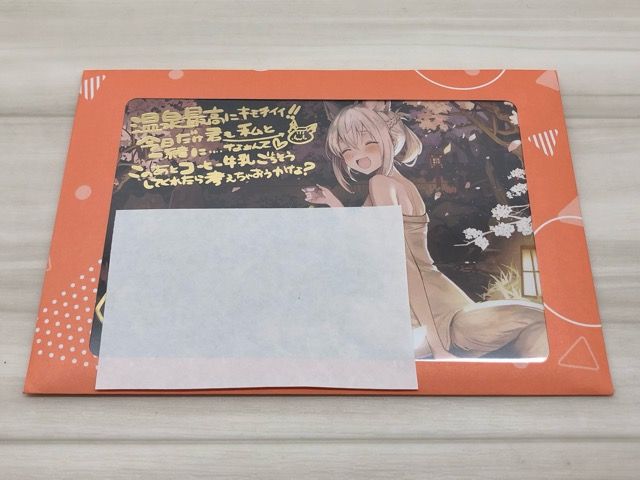 温泉最高にキモチイイ!!
今日だけ君も私と
一緒に……なぁんて♡
このあとコーヒー牛乳ごちそう
してくれたら考えちゃおうかけよ?